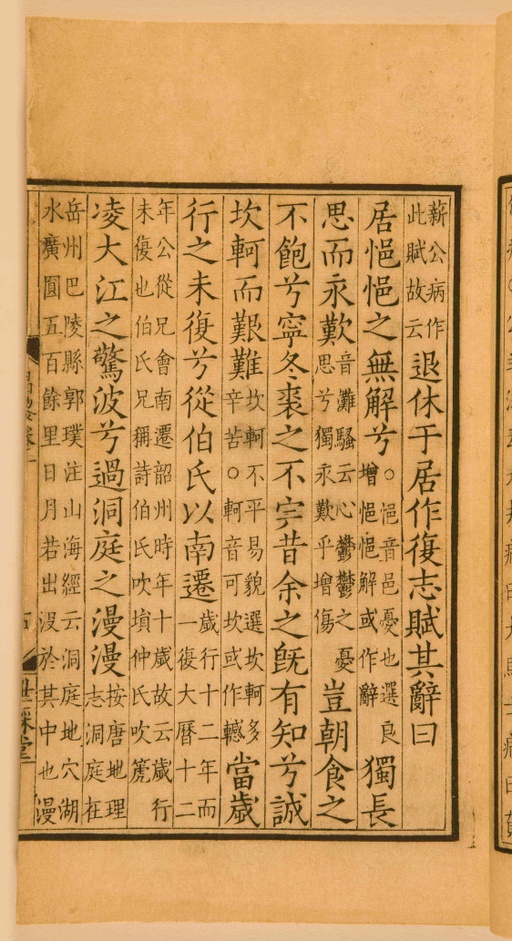 薪公病作此賦故云退休于居作復志賦其辭曰
居悒悒之無解兮○悒音邑憂也選良增悒悒解或作辭獨長
思而永歎音灘騷云心鬱鬱之憂思兮獨永歎乎增傷豈朝食之
不飽兮寧冬裘之不完昔余之旣有知兮誠
坎軻而艱難坎軻不平易貌選坎軻多辛苦○軻音可坎或作轗當歲
行之未復兮從伯氏以南遷歲行十二年而一復大曆十二
年公從兄會南遷韶州時年十歲故云歲行未復也伯氏兄稱詩伯氏吹塤仲氏吹篪
凌大江之驚波兮過洞庭之漫漫按唐地理志洞庭在
岳州巴陵縣郭璞注山海經云洞庭地穴湖水廣圓五百餘里日月若出沒於其中也漫